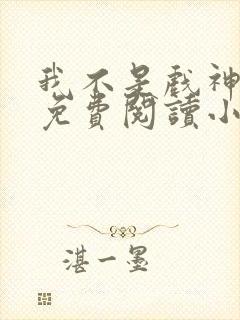 我不是戲神
免費閱讀小
湛一墨